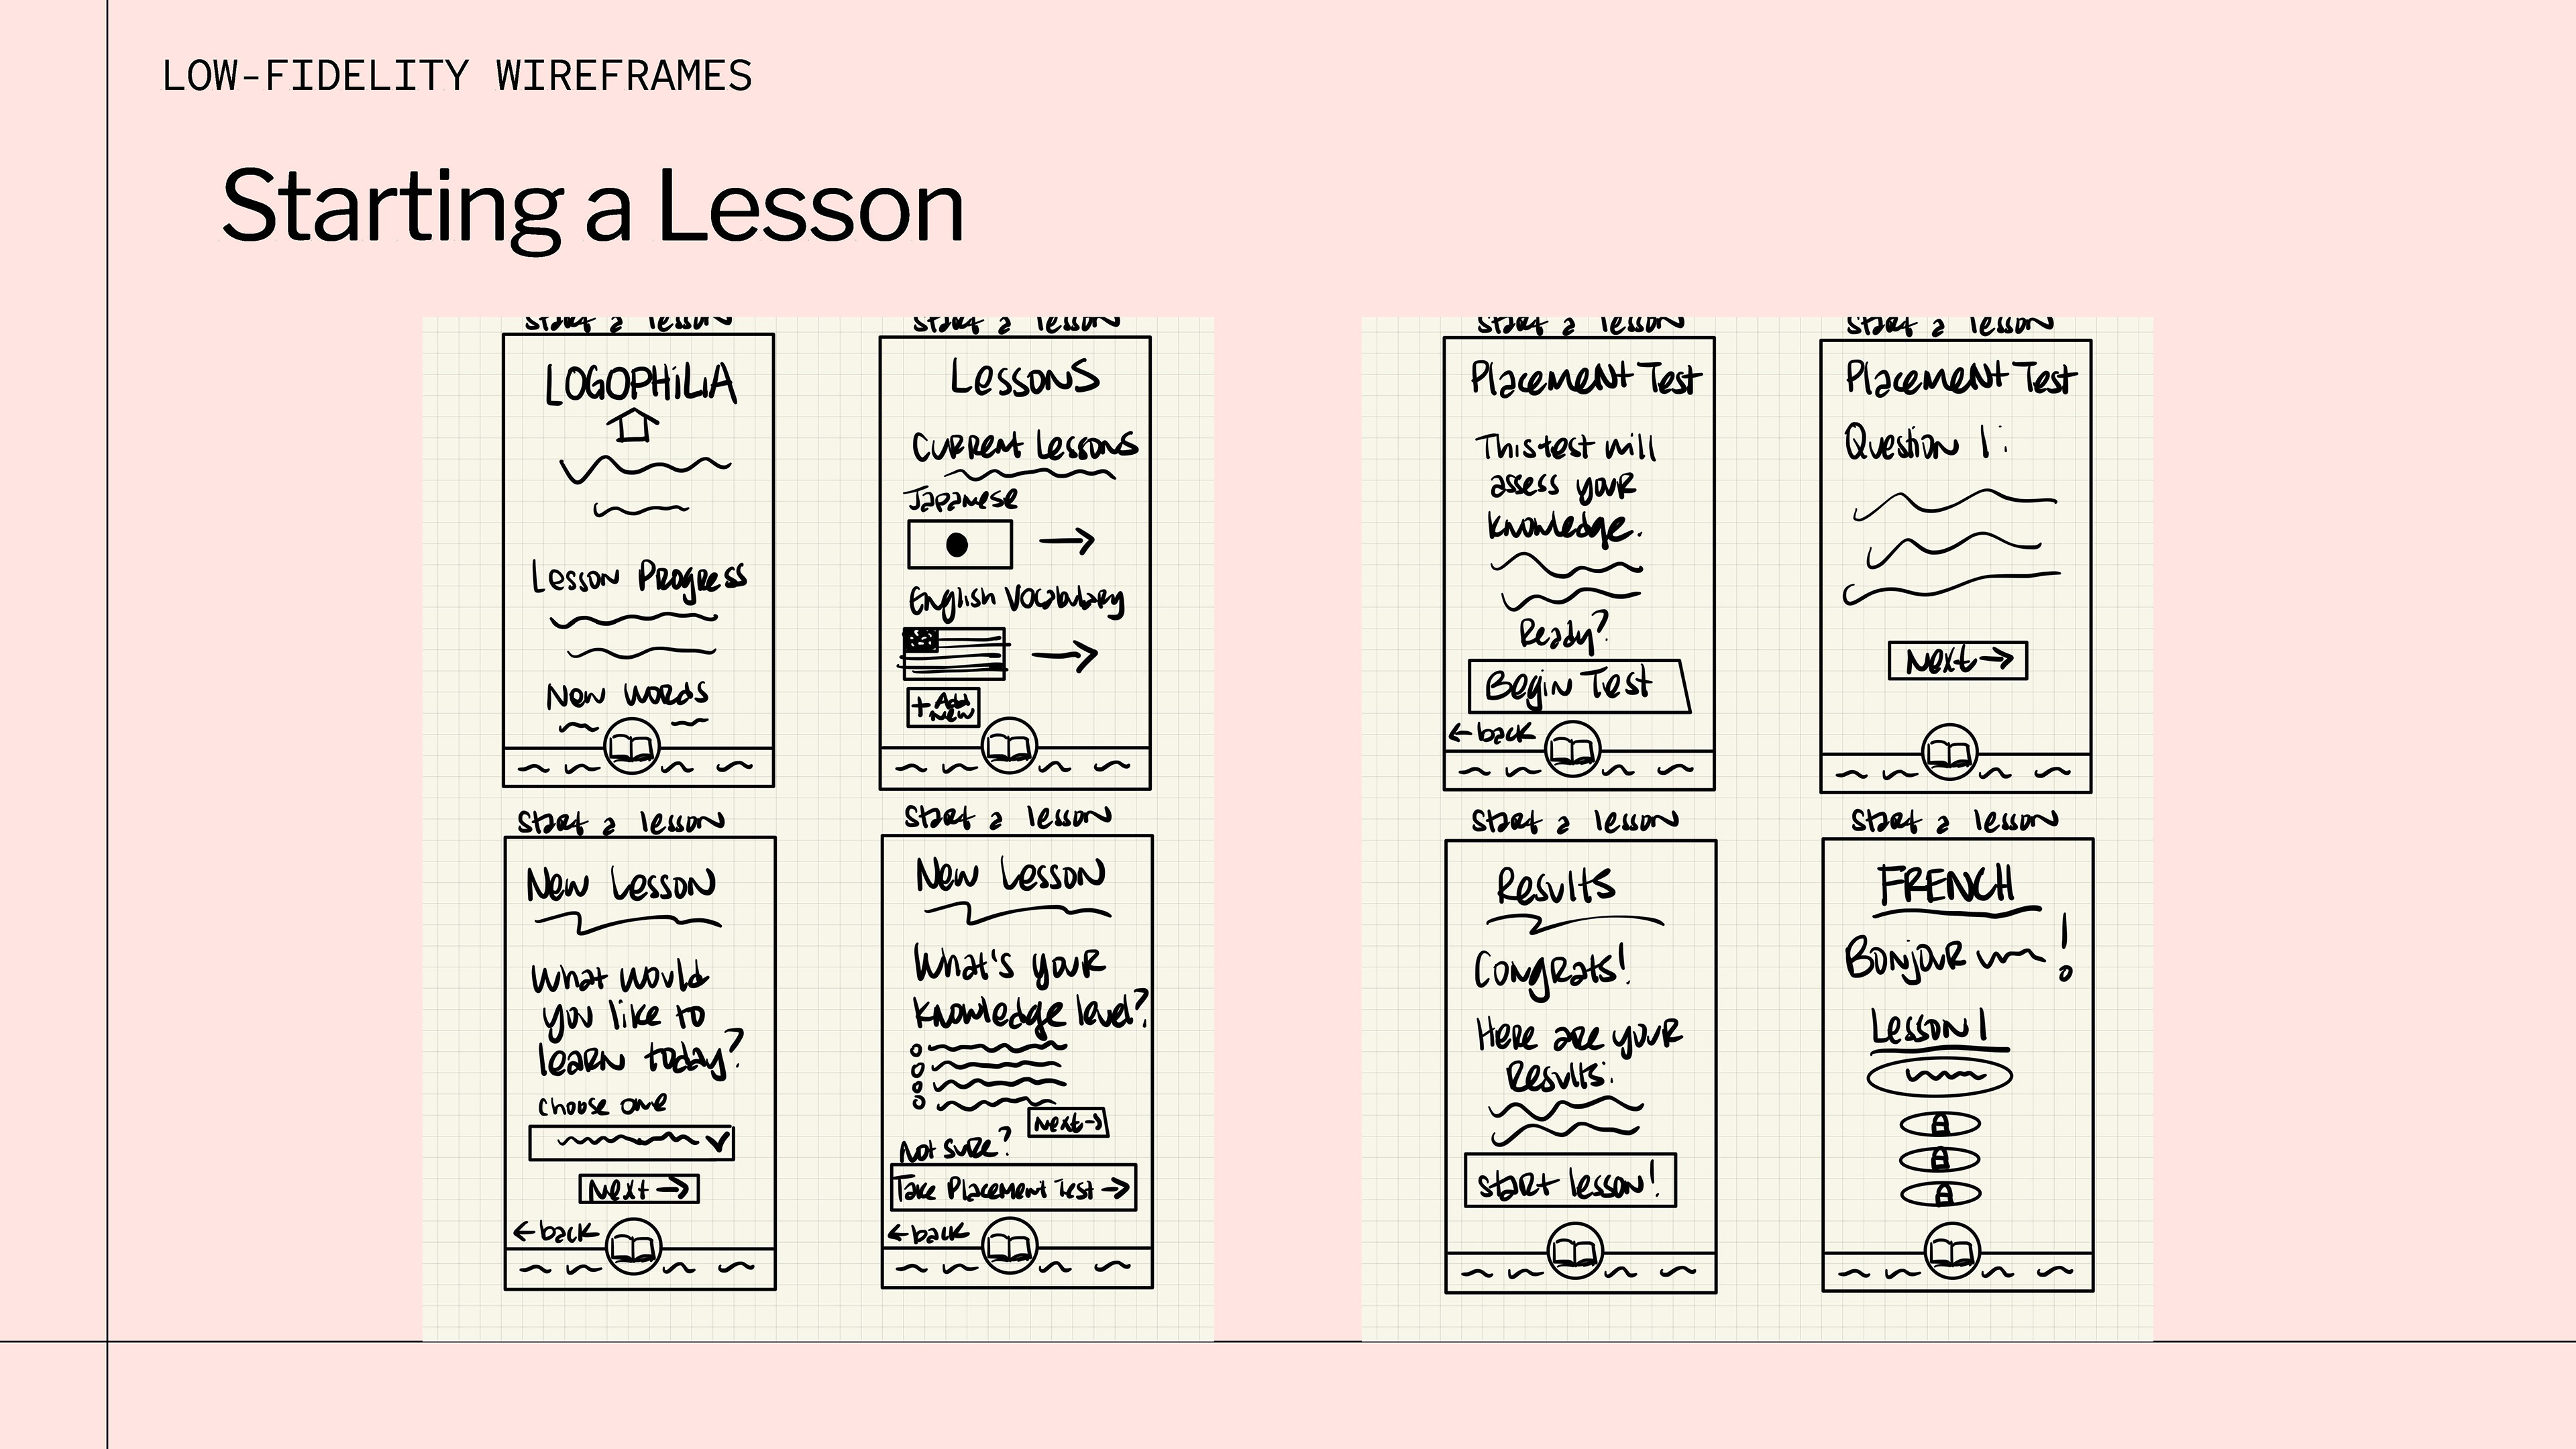 LOW-FIDELITY WIREFRAMES
Starting a Lesson
Start a lesson
LOGOPHiLiA
Lesson Progress
New words
Start a lesson
Lessons
Current Lessons
Japanese
English Vocabulary
+ Add
New
Start a lesson
New Lesson
What would
you like to
learn today?
choose one
Next →
← back
Start a lesson
New Lesson
What's your
knowledge level?
Next →
Not sure?
Take Placement Test →
← back
Start a lesson
Placement Test
This test will
assess your
knowledge.
Ready?
Begin Test
← back
Start a lesson
Placement Test
Question 1:
Next →
Start a lesson
Results
Congrats!
Here are your
Results:
start lesson!
Start a lesson
FRENCH
Bonjour !
Lesson 1